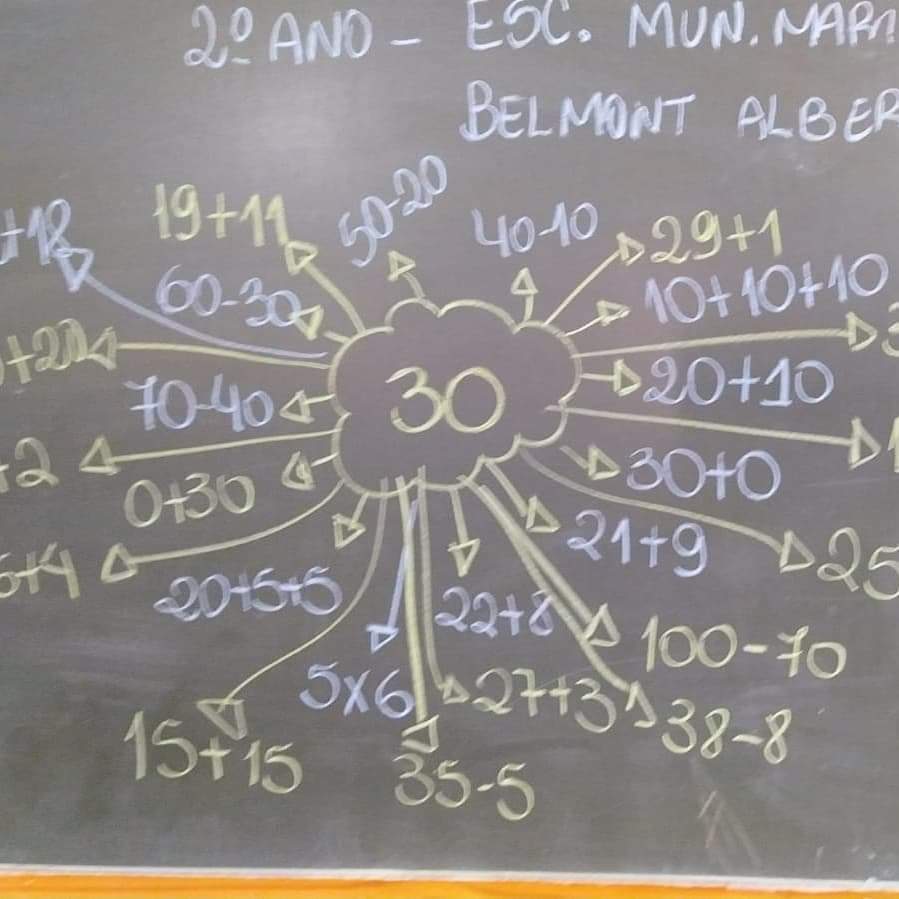 2º ANO - ESC. MUN. MARI
BELMONT ALBER
+18
19+11
50-20
40-10
29+1
60-30
10+10+10
+20
3
70-40
30
20+10
1
+2
0+30
30+0
21+9
6+4
25
20+5+5
22+8
100-70
5x6
27+3
38-8
15+15
35-5